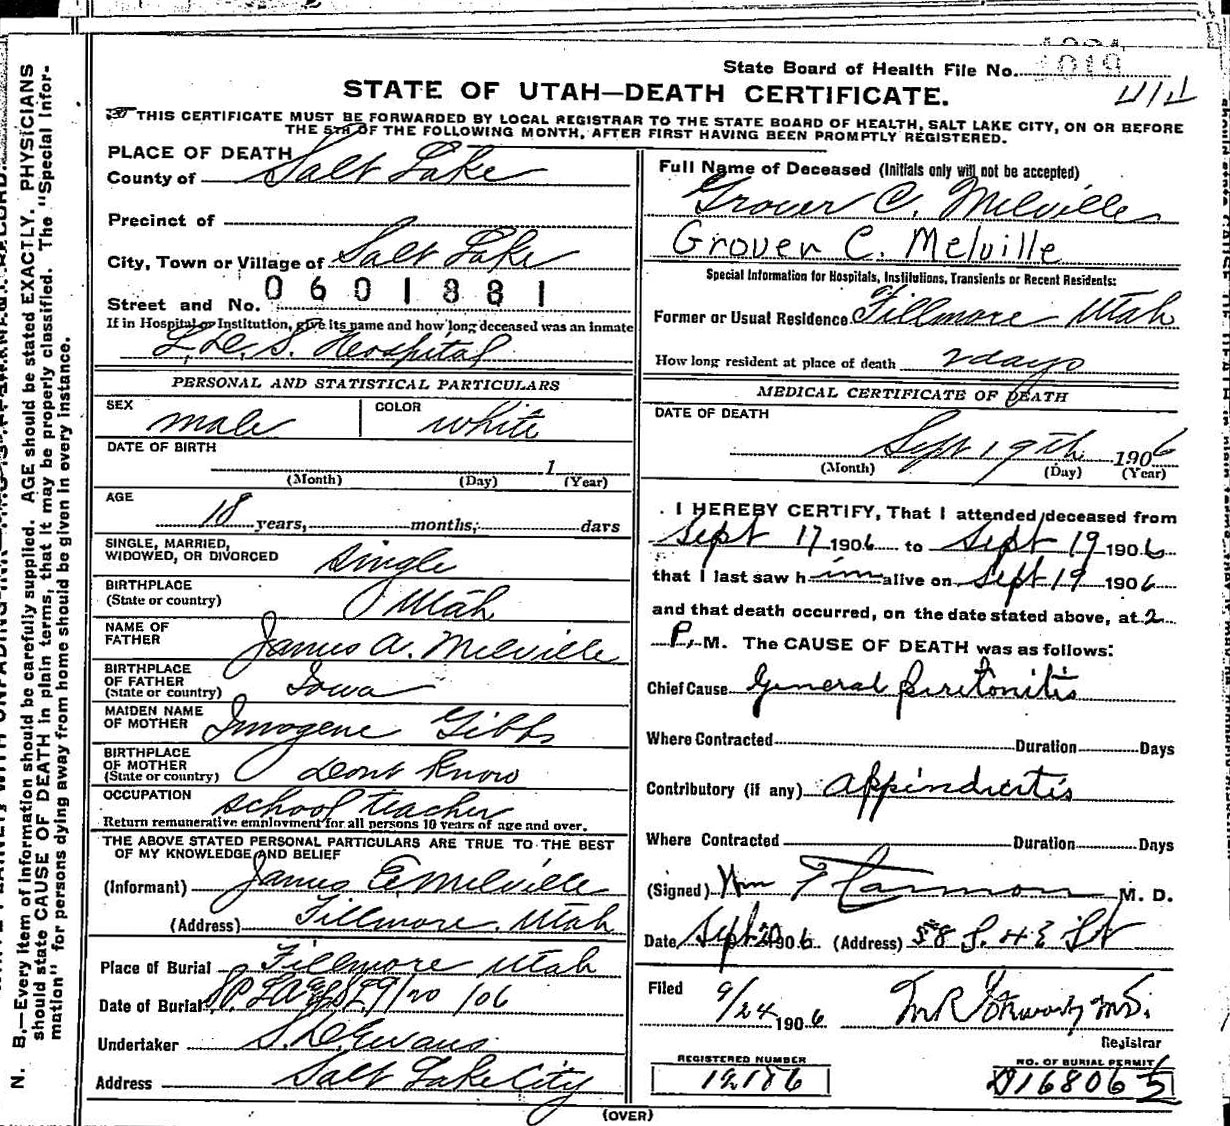 N. B.—Every item of information should be carefully supplied. AGE should be stated EXACTLY. PHYSICIANS
should state CAUSE OF DEATH in plain terms, that it may be properly classified. The "Special Infor-
mation" for persons dying away from home should be given in every instance.
State Board of Health File No.
STATE OF UTAH—DEATH CERTIFICATE.
THIS CERTIFICATE MUST BE FORWARDED BY LOCAL REGISTRAR TO THE STATE BOARD OF HEALTH, SALT LAKE CITY, ON OR BEFORE
THE 5TH OF THE FOLLOWING MONTH, AFTER FIRST HAVING BEEN PROMPTLY REGISTERED.
PLACE OF DEATH
County of Salt Lake
Precinct of
City, Town or Village of Salt Lake
Street and No. 0601881
If in Hospital or Institution, give its name and how long deceased was an inmate
L.D.S. Hospital
PERSONAL AND STATISTICAL PARTICULARS
SEX male COLOR white
DATE OF BIRTH
1
(Month) (Day) (Year)
AGE
18 years, months, days
SINGLE, MARRIED,
WIDOWED, OR DIVORCED single
BIRTHPLACE
(State or country) Utah
NAME OF
FATHER James A. Melville
BIRTHPLACE
OF FATHER
(State or country) Iowa
MAIDEN NAME
OF MOTHER Imogene Gibbs
BIRTHPLACE
OF MOTHER
(State or country) Dont Know
OCCUPATION school teacher
Return remunerative employment for all persons 10 years of age and over.
THE ABOVE STATED PERSONAL PARTICULARS ARE TRUE TO THE BEST
OF MY KNOWLEDGE AND BELIEF
(Informant) James E. Melville
(Address) Fillmore, Utah
Place of Burial Fillmore Utah
Date of Burial 9/20/06
Undertaker S. D. Evans
Address Salt Lake City
Full Name of Deceased (Initials only will not be accepted)
Grover C. Melville
Grover C. Melville
Special Information for Hospitals, Institutions, Transients or Recent Residents:
Former or Usual Residence Fillmore Utah
How long resident at place of death 2 days
MEDICAL CERTIFICATE OF DEATH
DATE OF DEATH
Sept 19th 1906
(Month) (Day) (Year)
I HEREBY CERTIFY, That I attended deceased from
Sept 17 1906 to Sept 19 1906
that I last saw him alive on Sept 19 1906
and that death occurred, on the date stated above, at 2
P. M. The CAUSE OF DEATH was as follows:
Chief Cause General Piritonitis
Where Contracted Duration Days
Contributory (if any) Appindicitis
Where Contracted Duration Days
(Signed) Wm F M. D.
Date Sept 20 1906 (Address) 58 S. 4 E St
Filed 9/24 1906
Registrar
REGISTERED NUMBER
12186
NO. OF BURIAL PERMIT
D168065
(OVER)